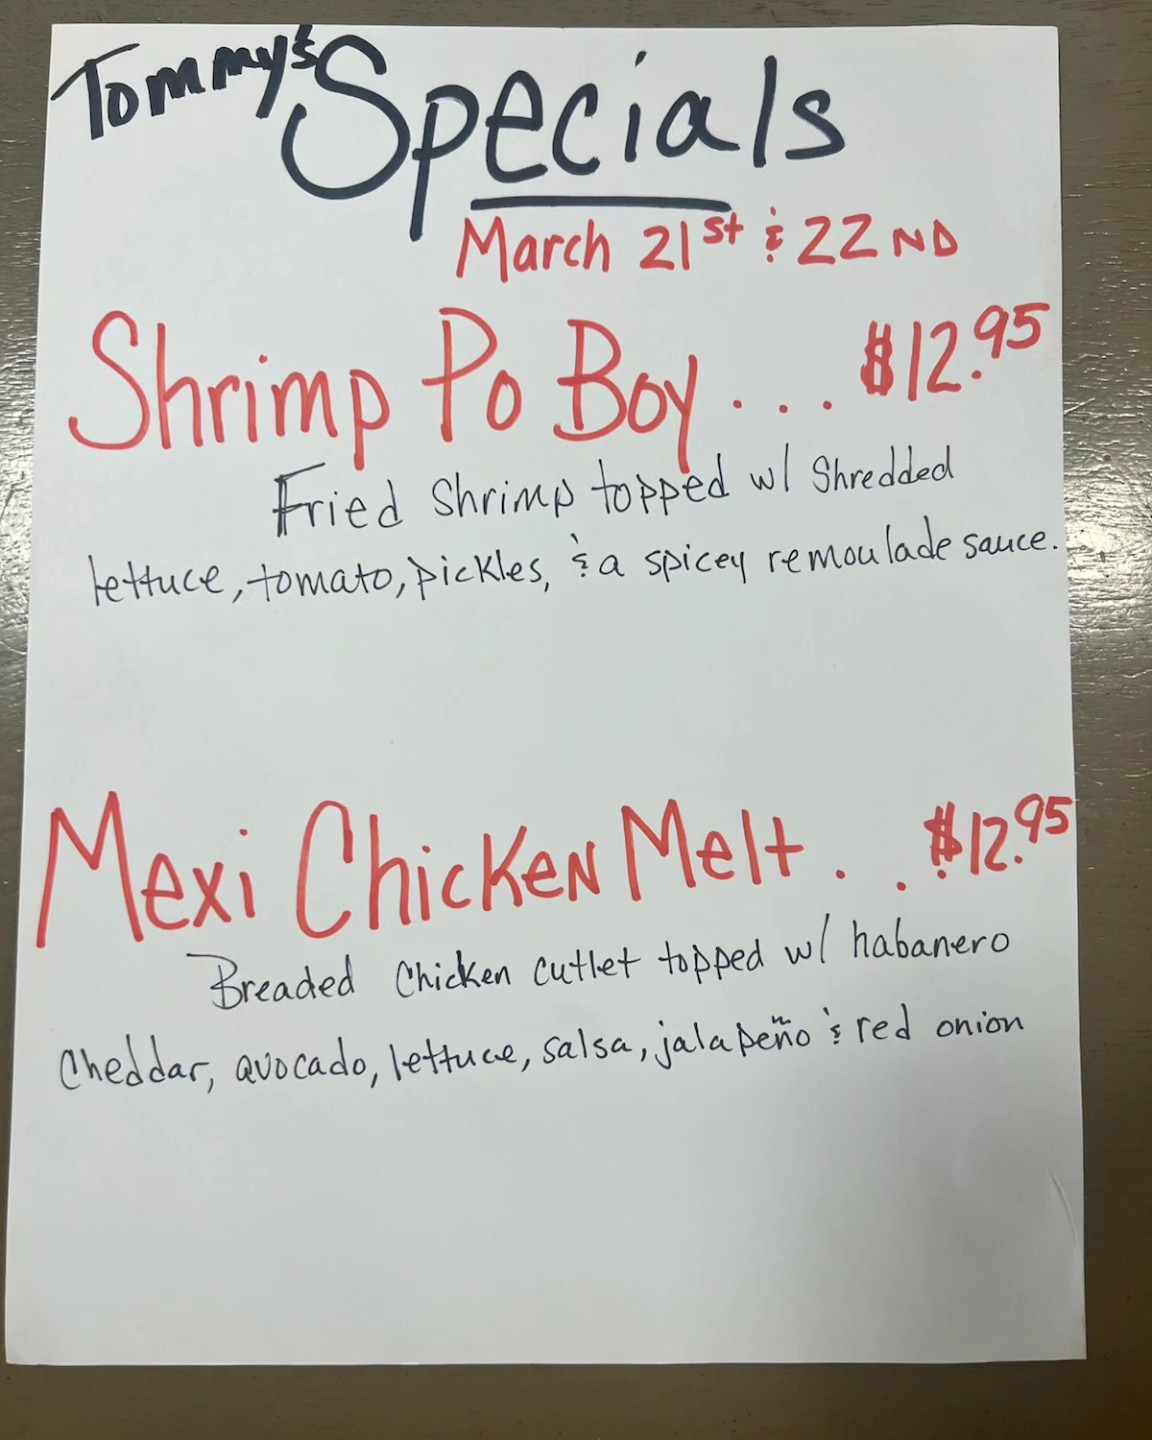 Tommy's Specials
March 21st & 22ND
Shrimp Po Boy... $12.95
Fried Shrimp topped w/ Shredded
lettuce, tomato, pickles, & a spicey remoulade sauce.
Mexi Chicken Melt... $12.95
Breaded Chicken cutlet topped w/ habanero
Cheddar, avocado, lettuce, salsa, jalapeño & red onion